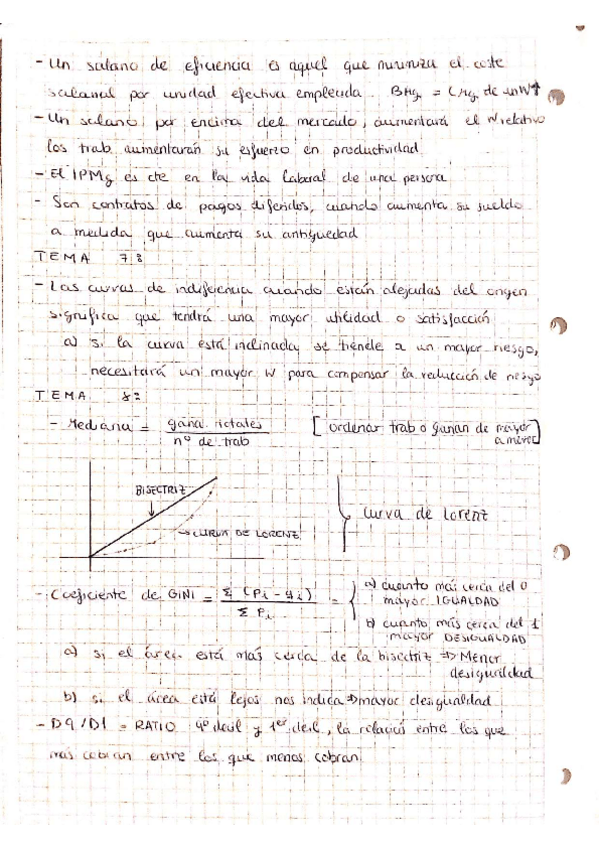 - Un salario de eficiencia es aquel que minimiza el coste
salarial por unidad efectiva empleada. BMg = CMg de un W↑
- Un salario por encima del mercado, aumentará el W relativo
los trab aumentarán su esfuerzo en productividad
- El IPMg es cte en la vida laboral de una persona
- Son contratos de pagos diferidos, cuando aumenta su sueldo
a medida que aumenta su antigüedad
TEMA 7:
- Las curvas de indiferencia cuando están alejadas del origen
significa que tendrá una mayor utilidad o satisfacción
a) si la curva está inclinada, se tiende a un mayor riesgo,
necesitará un mayor W para compensar la reducción de riesgo
TEMA 8:
- Mediana = gana. totales / nº de trab [ordenar trab o ganan de mayor a menor]
BISECTRIZ
→ CURVA DE LORENZ
Curva de Lorenz
- Coeficiente de GINI = Σ (Pi - qi) / Σ Pi =
a) cuanto más cerca del 0
mayor IGUALDAD
b) cuanto más cerca del 1
mayor DESIGUALDAD
a) si el área está más cerca de la bisectriz ⇒ Menor
desigualdad
b) si el área está lejos nos indica ⇒ mayor desigualdad
- D9/D1 = RATIO 9º decil y 1er decil, la relación entre los que
más cobran entre los que menos cobran